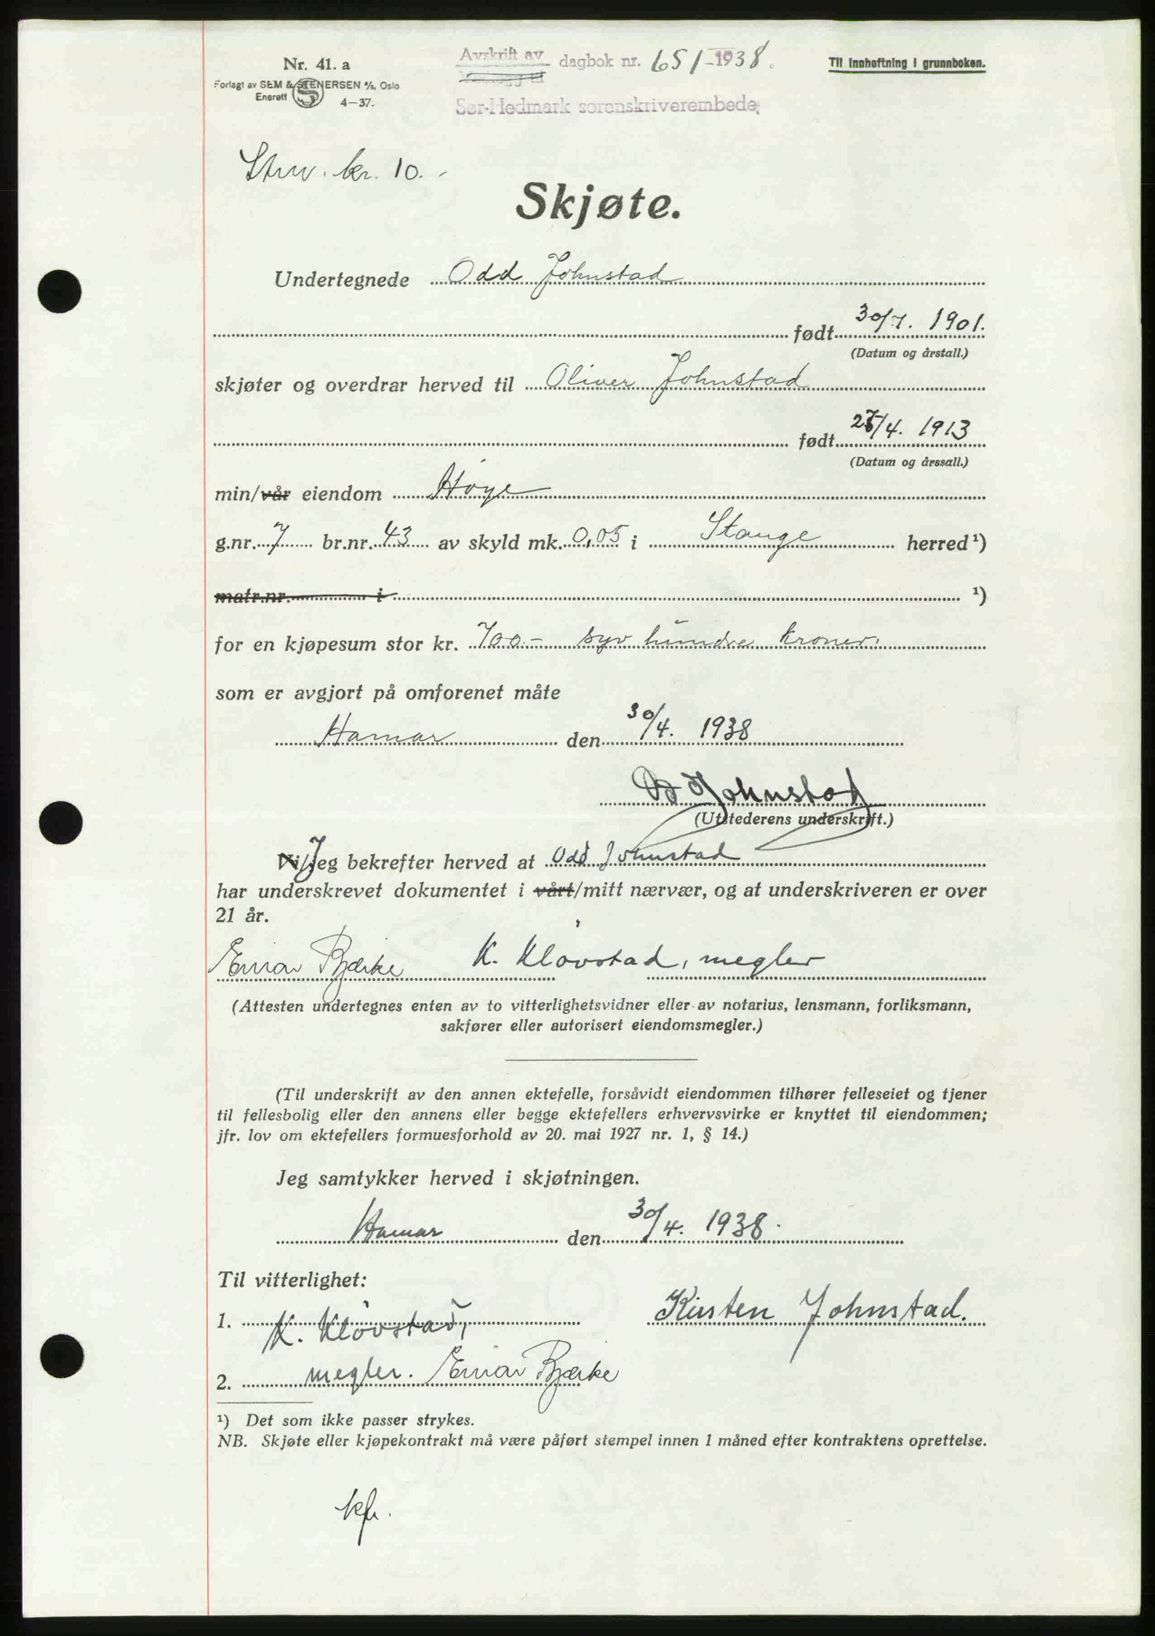 Nr. 41. a
Forlagt av SEM & STENERSEN A/S, Oslo
Enerett 4–37.
Avskrift av dagbok nr. 651-1938.
Sør-Hedmark sorenskriverembede
Til innheftning i grunnboken.
kr. 10.-
Skjøte.
Undertegnede Odd Johnstad
født 30/7. 1901.
(Datum og årstall.)
skjøter og overdrar herved til Oliver Johnstad
født /4. 1913
(Datum og årssall.)
min/vår eiendom Høye
g.nr. 7 br.nr. 43 av skyld mk. 0,05 i Stange herred ¹)
matr.nr. i ¹)
for en kjøpesum stor kr. 700.- syv hundre kroner.
som er avgjort på omforenet måte
Hamar den 30/4. 1938
Johnstad
(Utstederens underskrift.)
Vi/Jeg bekrefter herved at Odd Johnstad
har underskrevet dokumentet i vårt/mitt nærvær, og at underskriveren er over
21 år.
Einar Bjerke K. Kløvstad, megler
(Attesten undertegnes enten av to vitterlighetsvidner eller av notarius, lensmann, forliksmann,
sakfører eller autorisert eiendomsmegler.)
(Til underskrift av den annen ektefelle, forsåvidt eiendommen tilhører felleseiet og tjener
til fellesbolig eller den annens eller begge ektefellers erhvervsvirke er knyttet til eiendommen;
jfr. lov om ektefellers formuesforhold av 20. mai 1927 nr. 1, § 14.)
Jeg samtykker herved i skjøtningen.
Hamar den 30/4. 1938.
Til vitterlighet:
1. K. Kløvstad, Kirsten Johnstad.
2. megler. Einar Bjerke
¹) Det som ikke passer strykes.
NB. Skjøte eller kjøpekontrakt må være påført stempel innen 1 måned efter kontraktens oprettelse.